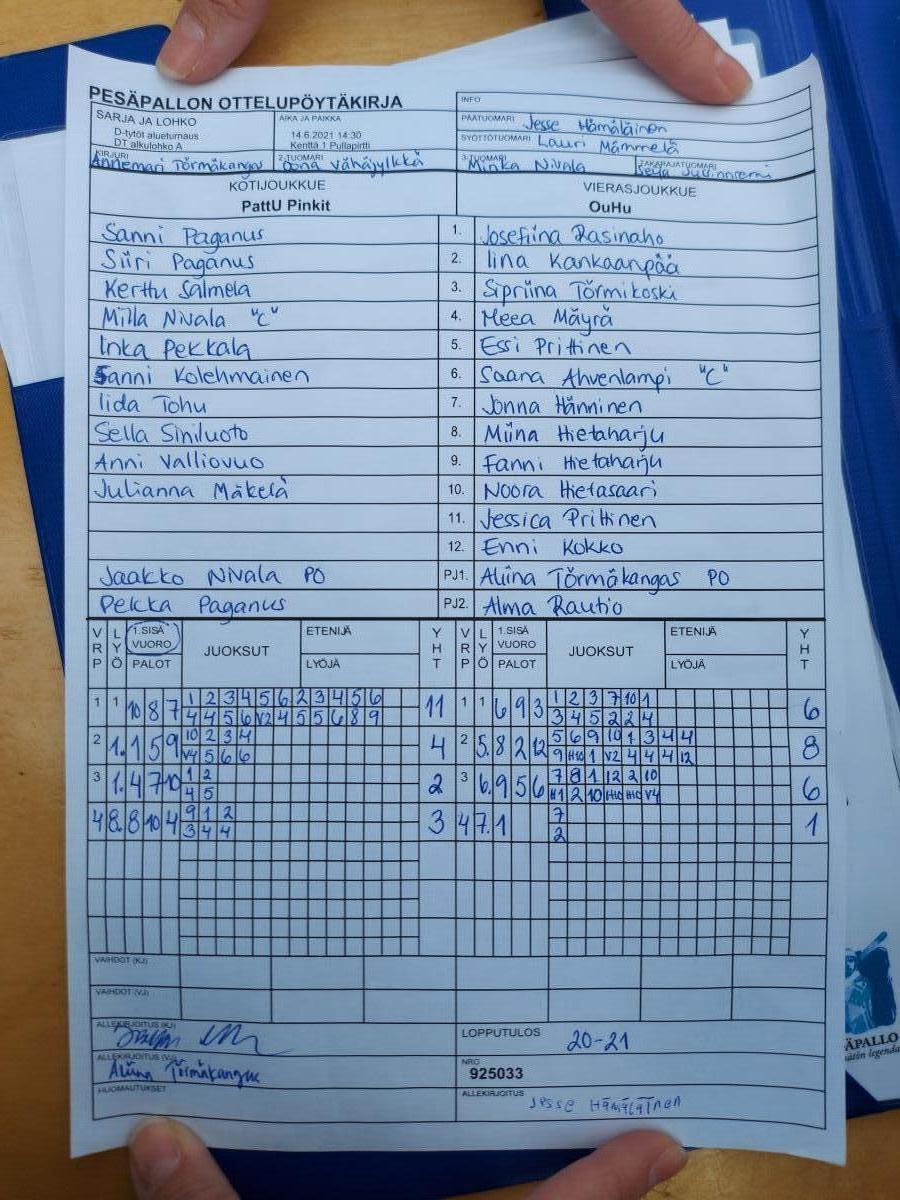 PESÄPALLON OTTELUPÖYTÄKIRJA
INFO
SARJA JA LOHKO
D-tytöt alueturnaus
DT alkulohko A
AIKA JA PAIKKA
14.6.2021 14:30
Kenttä 1 Pullapirtti
PÄÄTUOMARI Jesse Hämäläinen
SYÖTTÖTUOMARI Lauri Mämmelä
KIRJURI Annemari Törmäkangas
2-TUOMARI Oona Vähäjylkkä
3-TUOMARI Minka Nivala
TAKARAJATUOMARI
KOTIJOUKKUE
PattU Pinkit
VIERASJOUKKUE
OuHu
Sanni Paganus 1. Josefiina Rasinaho
Siiri Paganus 2. Iina Kankaanpää
Kerttu Salmela 3. Sipriina Törmikoski
Milla Nivala "C" 4. Meea Mäyrä
Inka Pekkala 5. Essi Prittinen
Sanni Kolehmainen 6. Saana Ahvenlampi "C"
Iida Tohu 7. Jonna Hänninen
Sella Siniluoto 8. Miina Hietaharju
Anni Valliovuo 9. Fanni Hietaharju
Julianna Mäkelä 10. Noora Hietasaari
11. Jessica Prittinen
12. Enni Kokko
Jaakko Nivala PO PJ1. Aliina Törmäkangas PO
Pekka Paganus PJ2. Alma Rautio
VRP LYÖ 1.SISÄ VUORO PALOT JUOKSUT ETENIJÄ LYÖJÄ YHT VRP LYÖ 1.SISÄ VUORO PALOT JUOKSUT ETENIJÄ LYÖJÄ YHT
1 1 10 8 7 1 2 3 4 5 6 2 3 4 5 6 11 1 1 6 9 3 1 2 3 7 10 1 6
4 4 5 6 V2 4 5 5 6 8 9 3 4 5 2 2 4
2 1. 1 5 9 10 2 3 4 4 2 5. 8 2 12 5 6 9 10 1 3 4 4 8
V4 5 6 6 9 H10 1 V2 4 4 4 12
3 1. 4 7 10 1 2 2 3 6. 9 5 6 7 8 1 12 2 10 6
4 5 H1 2 10 H10 H10 V4
4 8. 8 10 4 9 1 2 3 4 7. 1 7 1
3 4 4 2
VAIHDOT (KJ)
VAIHDOT (VJ)
ALLEKIRJOITUS (KJ)
LOPPUTULOS 20-21
ALLEKIRJOITUS (VJ) Aliina Törmäkangas
NRO
925033
HUOMAUTUKSET
ALLEKIRJOITUS Jesse Hämäläinen